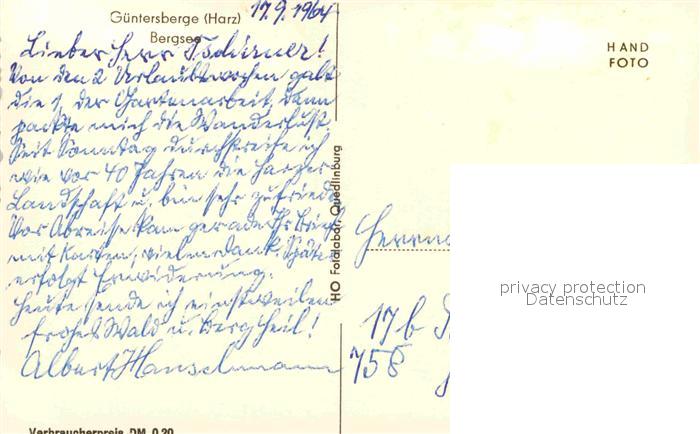 Güntersberge (Harz)
Bergsee
17.9.1964
Lieber Herr Tschirner!
Von den 2 Urlaubswochen galt
die 1. der Gartenarbeit, dann
packte mich die Wanderlust.
Seit Sonntag durchstreife ich
wie vor 40 Jahren die Harzer
Landschaft u. bin sehr zufrieden
Vor Abreise kam gerade Ihr Brief
mit Karten, vielen Dank. Später
erfolgt Erwiderung.
Heute sende ich einstweilen
frohes Wald u. Bergheil!
Albert Hanselmann
HO Fotolabor, Quedlinburg
HAND
FOTO
Herrn
17b
758
privacy protection
Datenschutz
Verbraucherpreis DM 0,20